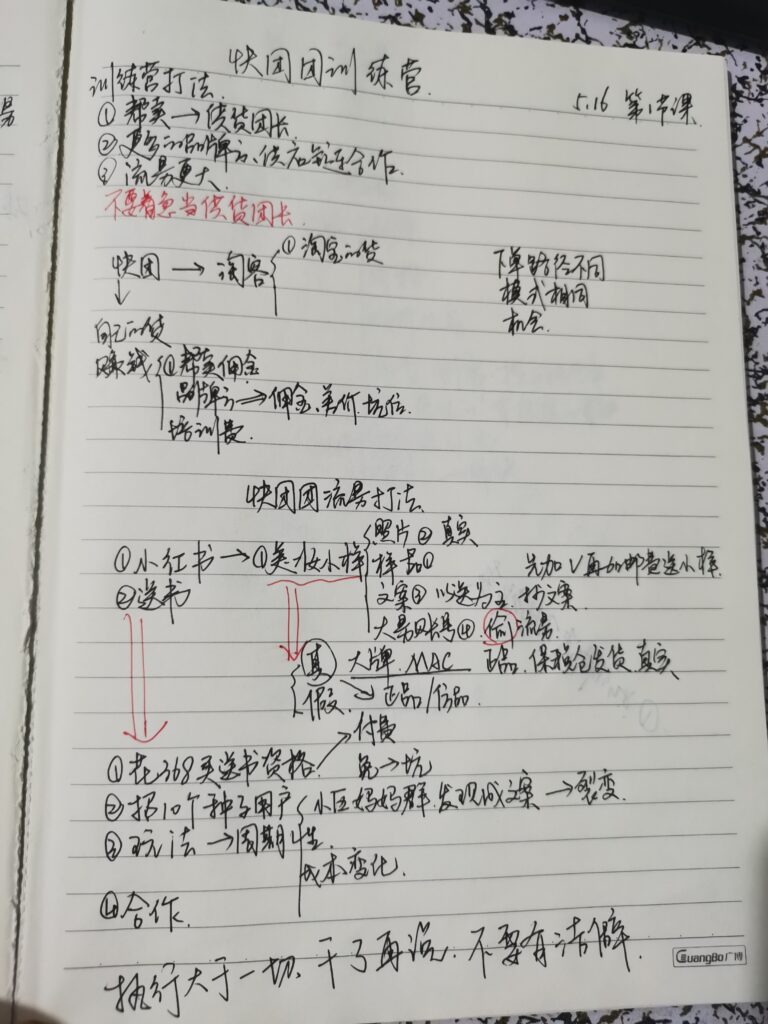 快团团训练营
5.16 第1节课
训练营打法
① 帮卖 → 供货团长
② 更多的品牌方、供应链合作
③ 流量更大
不要着急当供货团长
快团 → 淘客 ① 淘宝的货
下单路径不同
模式相同
机会
自己的货
赚钱 ① 帮卖佣金
品牌方 → 佣金、差价、坑位
培训费
快团团流量打法
① 小红书 → ① 美妆小样
② 送书
照片② 真实
样品①
文案③ 以送为主、抄文案
大量账号④ 偷流量
先加V再加邮费送小样
真 大牌 MAC 正品、保税仓发货 真实
假 正品/仿品
付费
① 花368买送书资格 免→坑
② 招10个种子用户 小区妈妈群、发现成文案 → 裂变
③ 玩法 → 周期性
成本变化
④ 合作
执行大于一切、干了再说、不要有洁癖
GuangBo广博